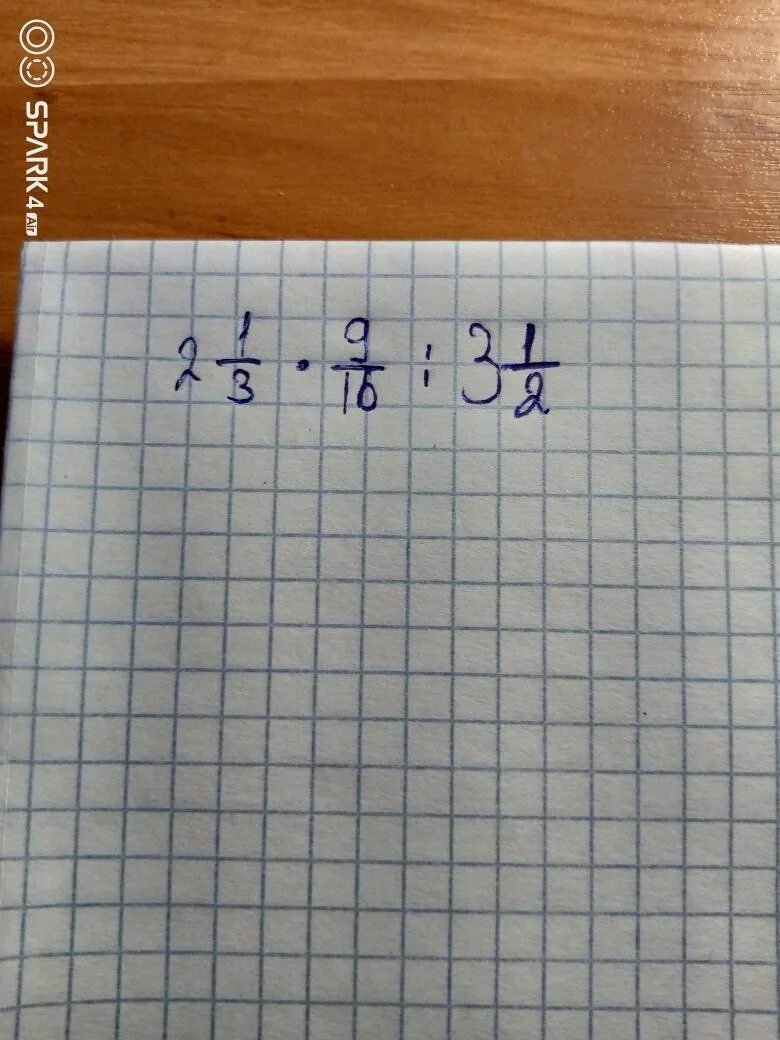 SPARK 4 Air
2 1/3 · 9/16 : 3 1/2